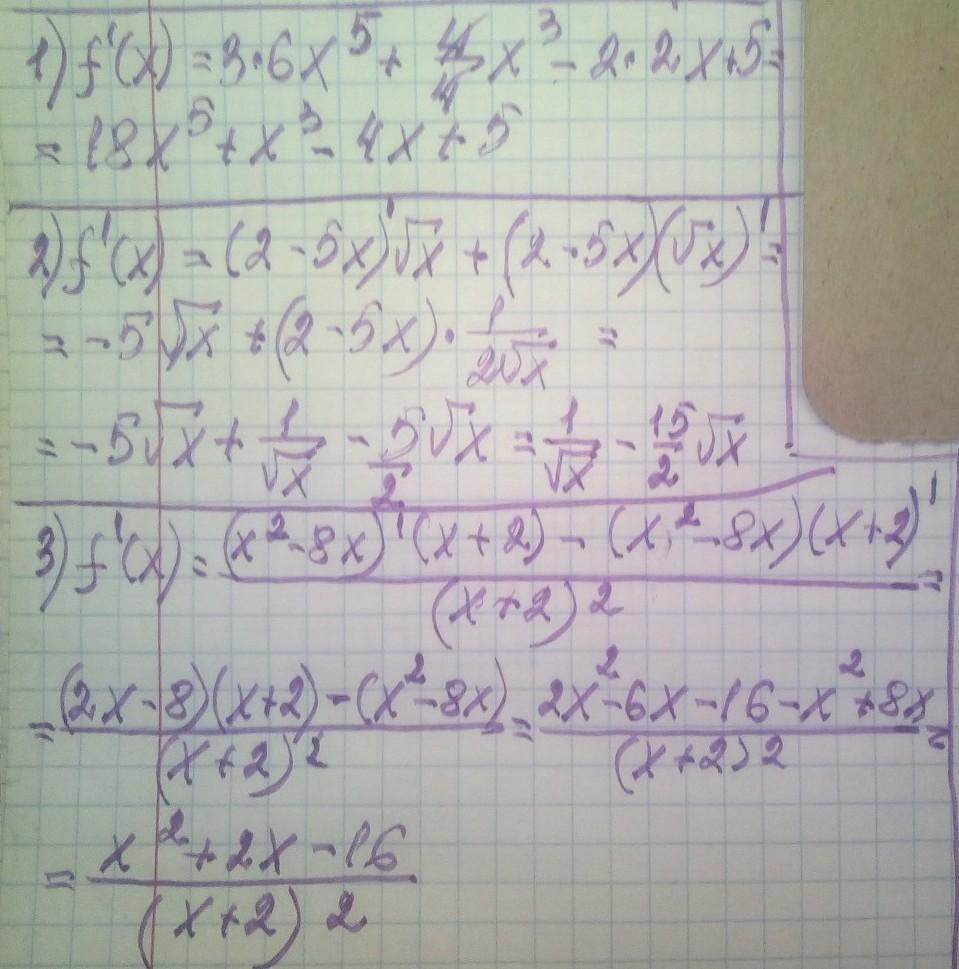 1) f'(x) = 3·6x⁵ + 4/4 x³ - 2·2x + 5 =
= 18x⁵ + x³ - 4x + 5
2) f'(x) = (2 - 5x)'√x + (2 - 5x)(√x)' =
= -5√x + (2 - 5x)· 1/(2√x) =
= -5√x + 1/√x - 5/2 √x = 1/√x - 15/2 √x
3) f'(x) = ((x² - 8x)'(x + 2) - (x² - 8x)(x + 2)')/(x + 2)² =
= ((2x - 8)(x + 2) - (x² - 8x))/(x + 2)² = (2x² - 6x - 16 - x² + 8x)/(x + 2)² =
= (x² + 2x - 16)/(x + 2)²